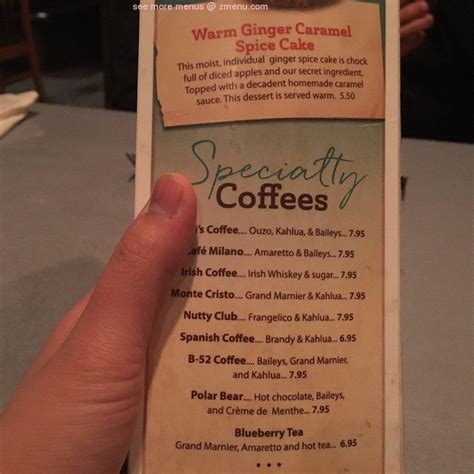 see more menus @ zmenu.com
Warm Ginger Caramel
Spice Cake
This moist, individual ginger spice cake is chock
full of diced apples and our secret ingredient.
Topped with a decadent homemade caramel
sauce. This dessert is served warm. 5.50
Specialty
Coffees
's Coffee.... Ouzo, Kahlua, & Baileys... 7.95
Café Milano... Amaretto & Baileys... 7.95
Irish Coffee... Irish Whiskey & sugar... 7.95
Monte Cristo.... Grand Marnier & Kahlua... 7.95
Nutty Club.... Frangelico & Kahlua... 7.95
Spanish Coffee.... Brandy & Kahlua... 6.95
B-52 Coffee.... Baileys, Grand Marnier,
and Kahlua... 7.95
Polar Bear.... Hot chocolate, Baileys,
and Crème de Menthe... 7.95
Blueberry Tea
Grand Marnier, Amaretto and hot tea... 6.95